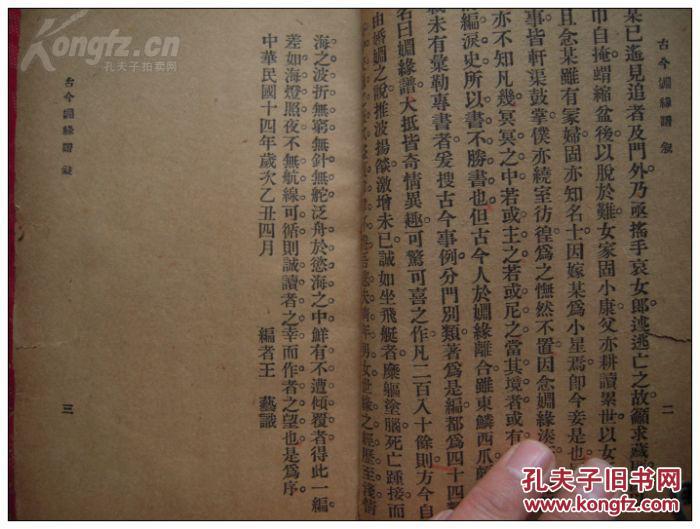 某已遙見追者及門外乃亟搖手哀女郎述逃亡之故籲求藏
巾自掩蝟縮盆後以脫於難女家固小康父亦耕讀累世以女
且念某雖有家婦固亦知名士因嫁某為小星焉卽今妾是也
事皆軒渠鼓掌僕亦繞室彷徨為之憮然不置因念姻緣湊
亦不知凡幾冥冥之中若或主之若或尼之當其境者或有
編淚史所以書不勝書也但古今人於姻緣離合雖東鱗西爪
歲未有彙勒專書者爰搜古今事例分門別類著為是編都為四十四
名曰姻緣譜大抵皆奇情異趣可驚可喜之作凡二百八十餘則方今自
由婚姻之說推波揚燄激增未已誠如坐飛艇者糜軀塗腦死亡踵接而
海之波折無窮無針無舵泛舟於慾海之中鮮有不遭傾覆者得此一編
差如海燈照夜不無航線可循則誠讀者之幸而作者之望也是為序
中華民國十四年歲次乙丑四月
編者王 藝識
古今姻緣譜 敍
二
古今姻緣譜 敍
三
Kongfz.com
孔夫子拍卖网
孔夫子旧书网
www.kongfz.com